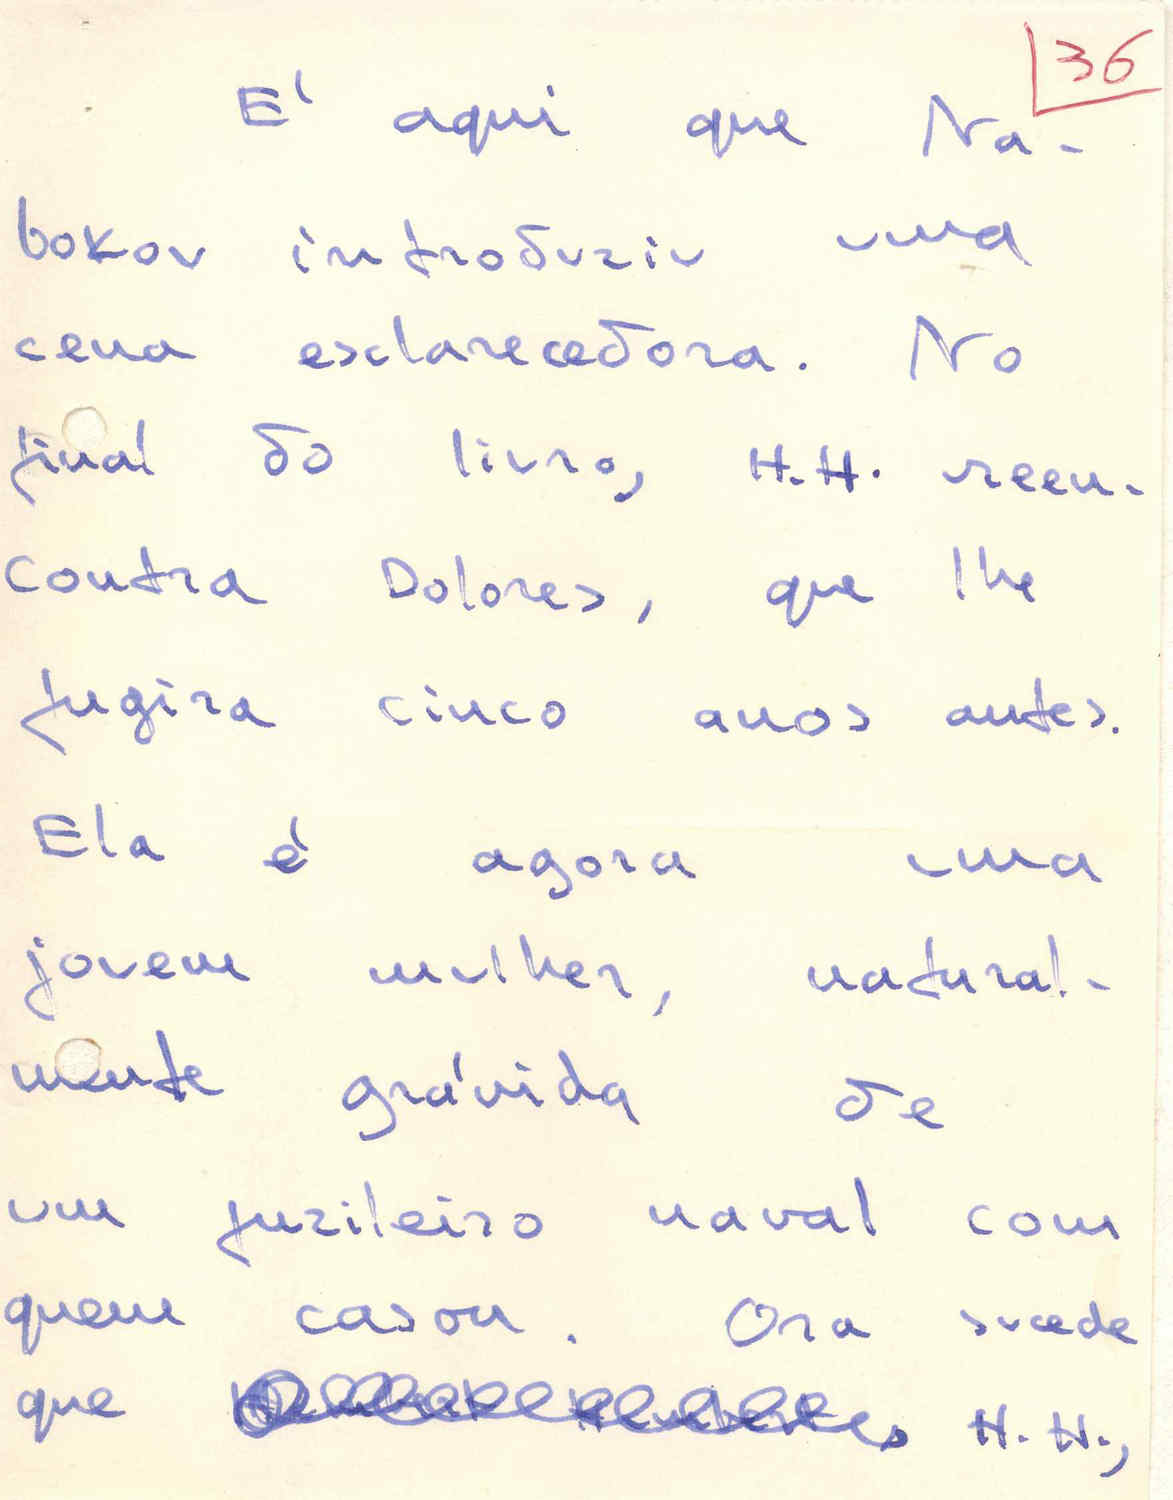 36
E' aqui que Na-
bokov introduziu uma
cena esclarecedora. No
final do livro, H.H. reen-
contra Dolores, que lhe
fugira cinco anos antes.
Ela é agora uma
jovem mulher, natural-
mente grávida de
um fuzileiro naval com
quem casou. Ora sucede
que H.H.,